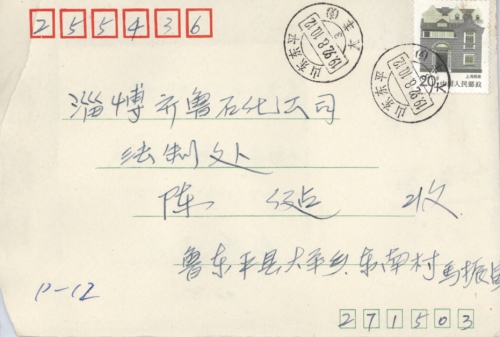 255436
山东东平
1992.8.10.12
山东东平
1992.8.10.12
上海民居
20分 中国人民邮政
淄博齐鲁石化公司
法制处
陈 收
鲁东平县大羊乡东南村 馬振
10-12
271503